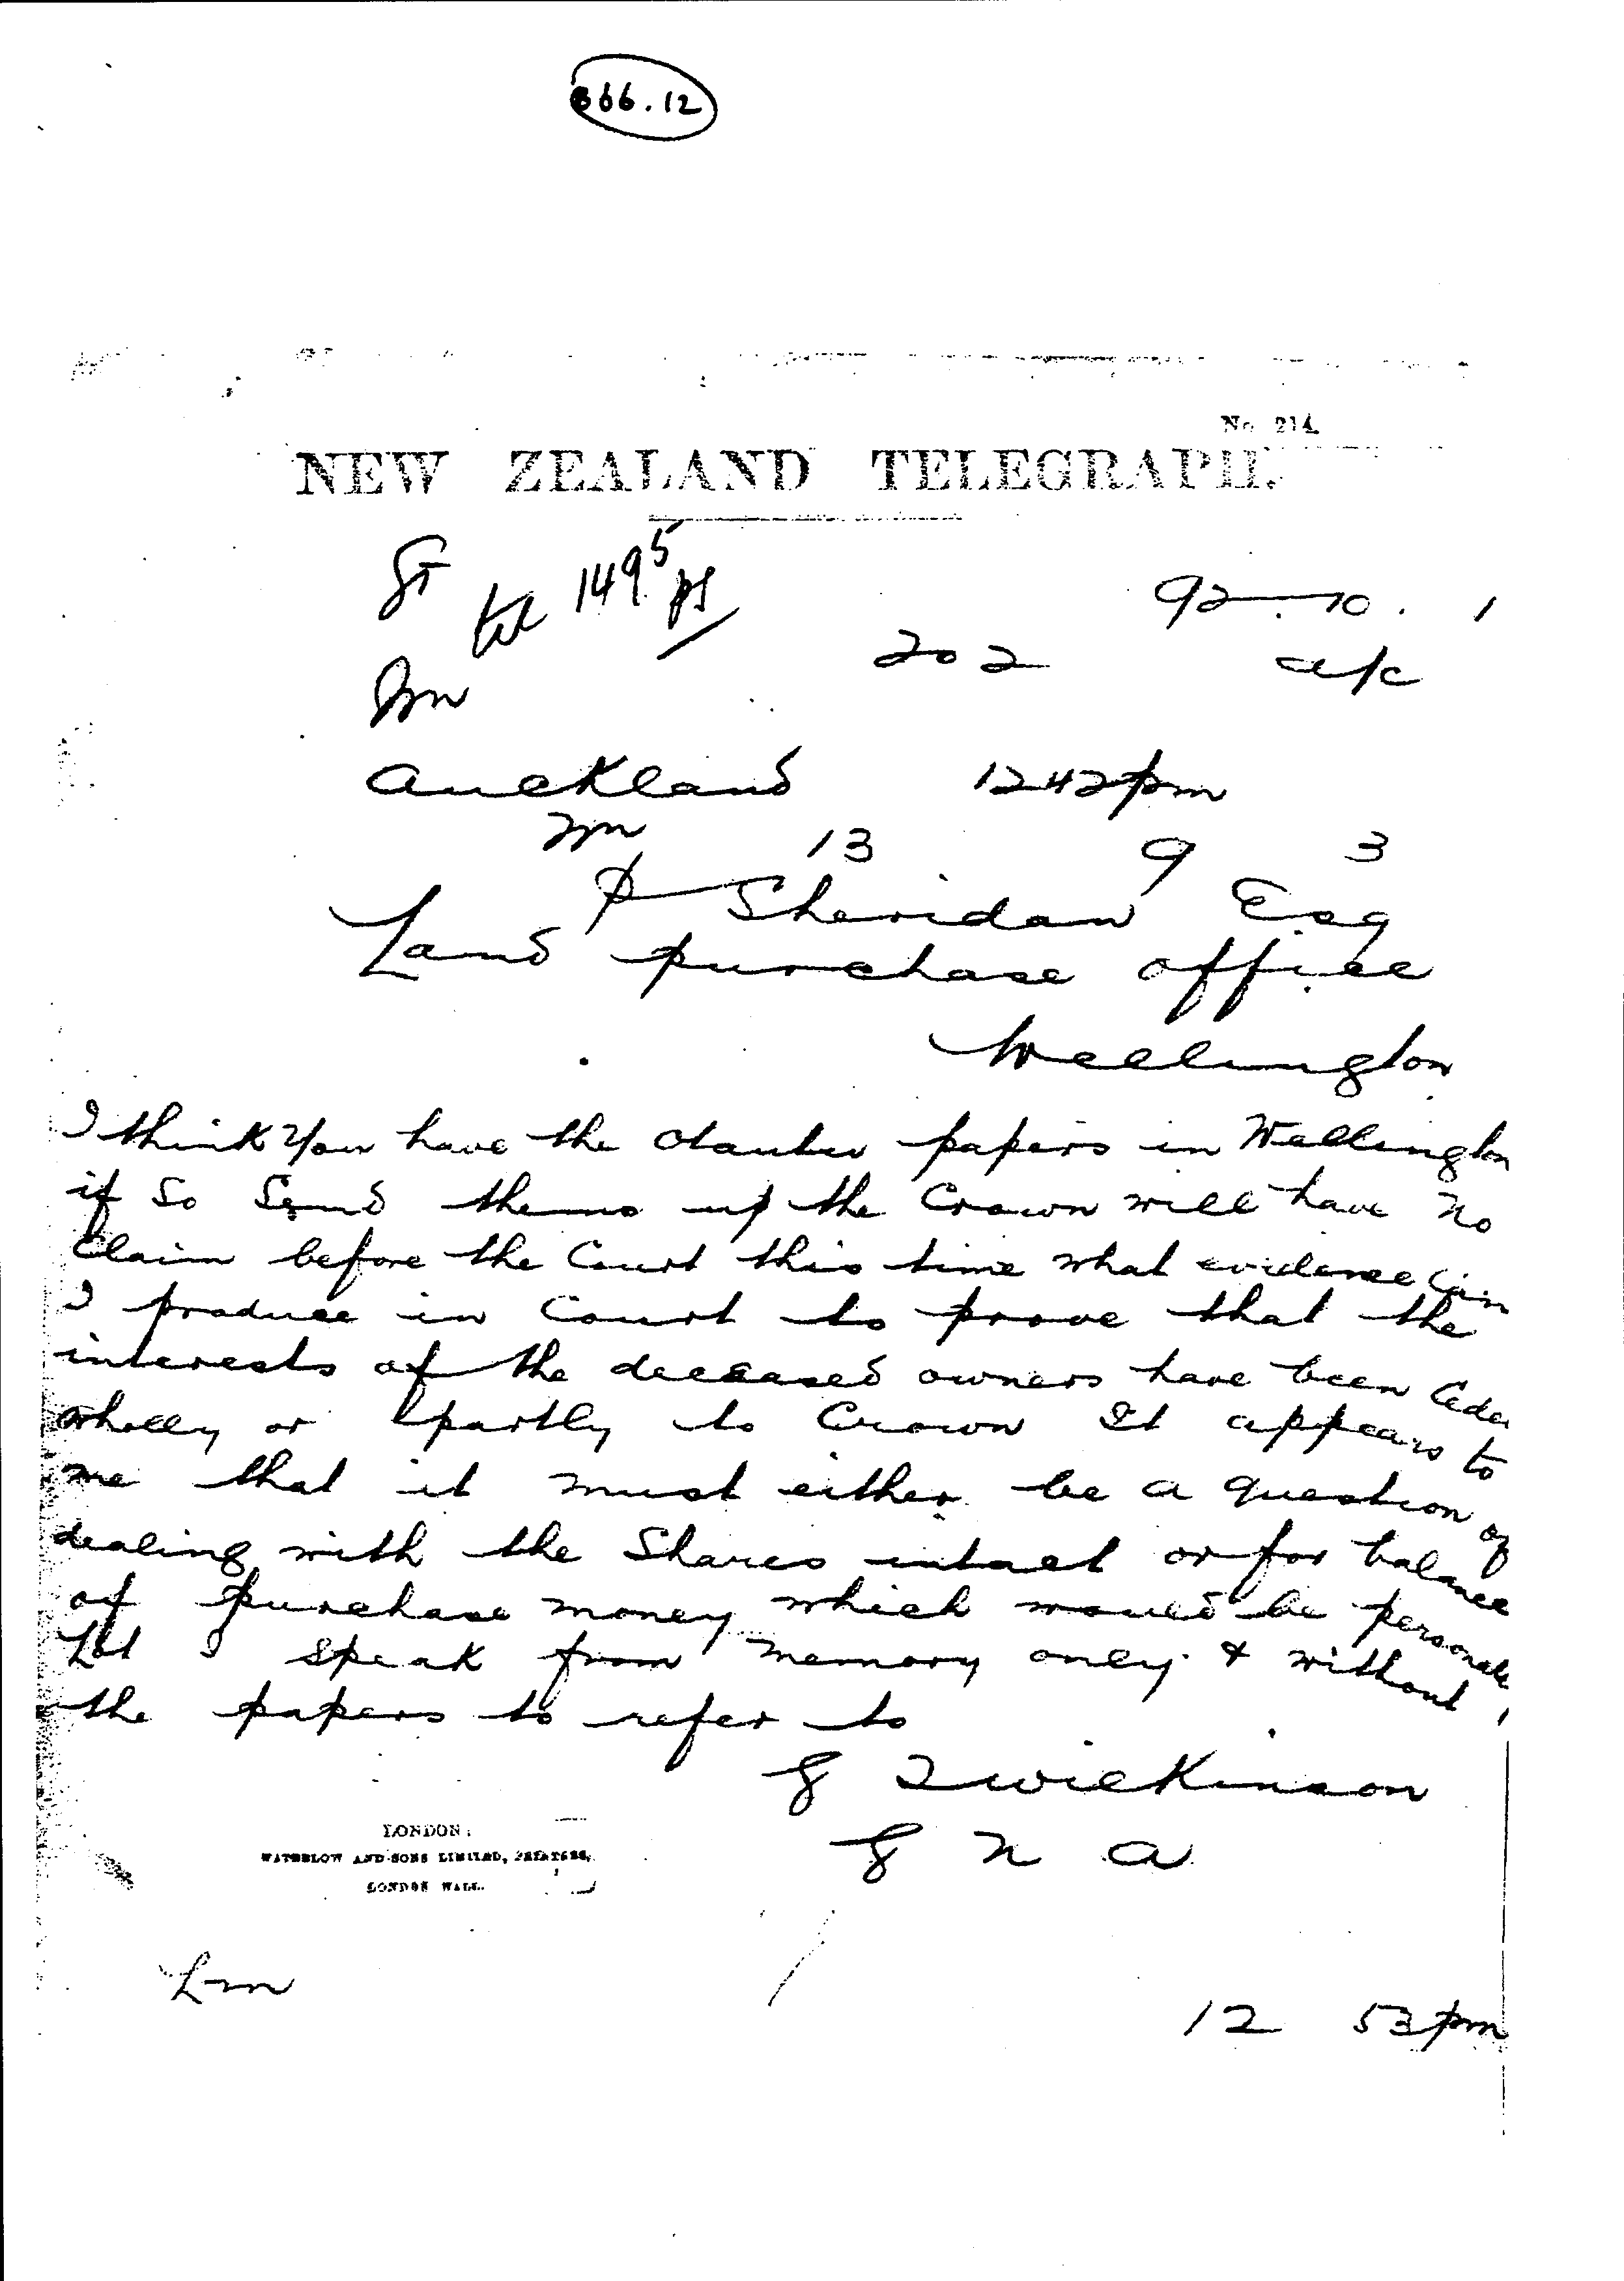 866.12
No 214.
NEW ZEALAND TELEGRAPH.
1495
92 . 10 . 1
202 a/c
Auckland 1242pm
13 9 3
P Sheridan Esq
Land purchase office
Wellington
I think you have the papers in Wellington
if so Send them up the Crown will have no
Claim before the Court this time what evidence Can
I produce in Court to prove that the
interests of the deceased owners have been Ceded
wholly or partly to Crown It appears to
me that it must either be a question of
dealing with the Shares intact or for balance
of purchase money which would be personalty
but I speak from memory only & without
the papers to refer to
G T Wilkinson
G N A
LONDON:
WATERLOW AND SONS LIMITED, PRINTERS,
LONDON WALL.
12 53pm